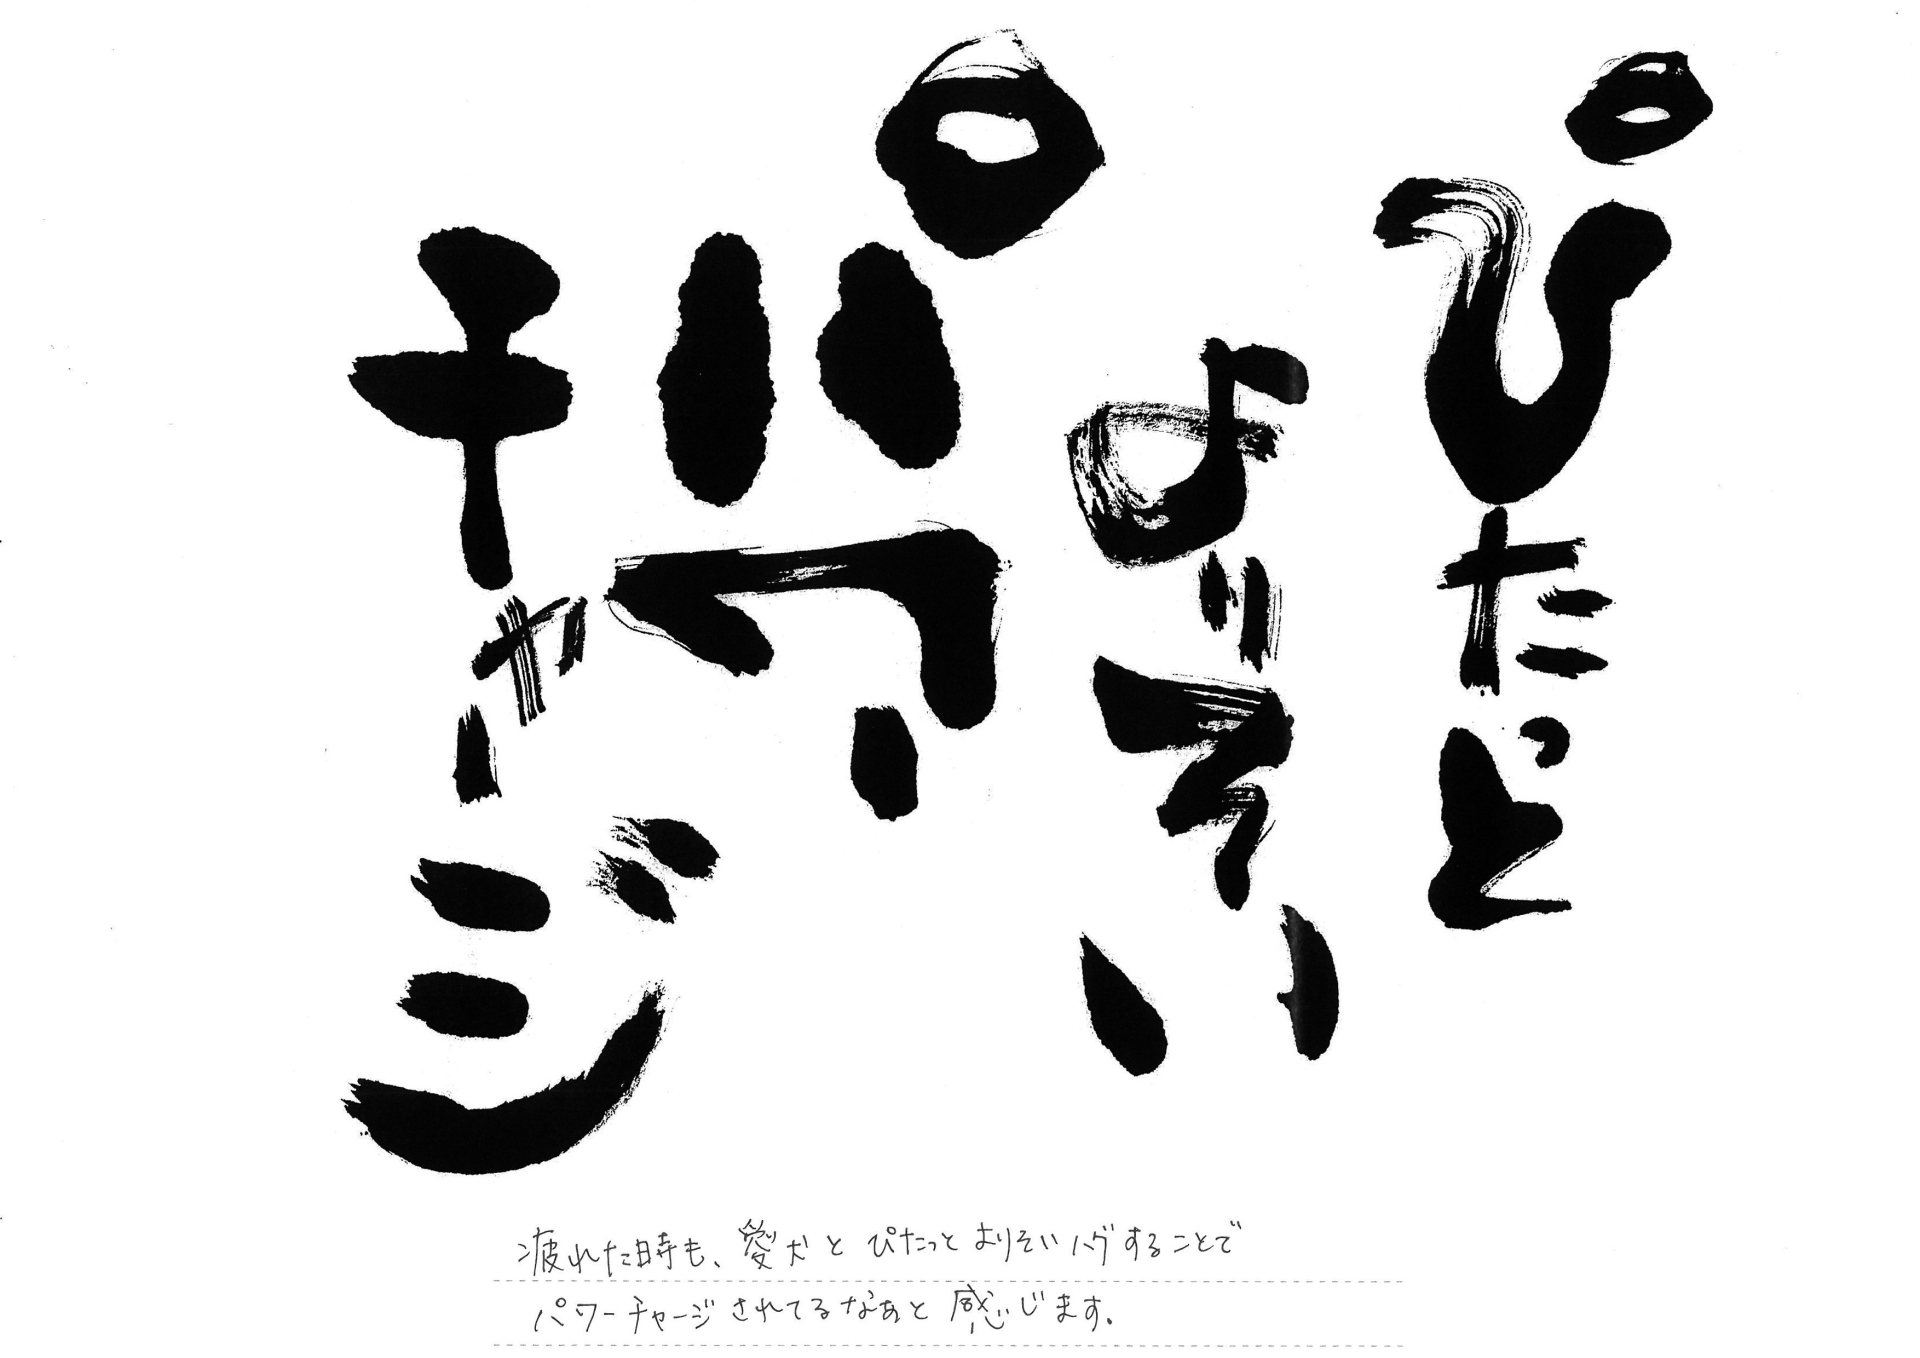 ぴたっと
よりそい
パワー
チャージ
疲れた時も、愛犬とぴたっとよりそいハグすることで
パワーチャージされてるなぁと感じます。